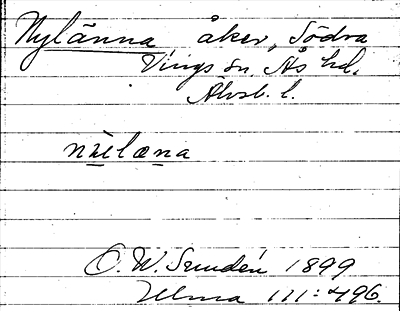 Nylänna åker, Södra
Vings sn. Ås hd.
Älvsb. l.
nẏelæna
O. W. Sundén 1899
Ulma 111:496.